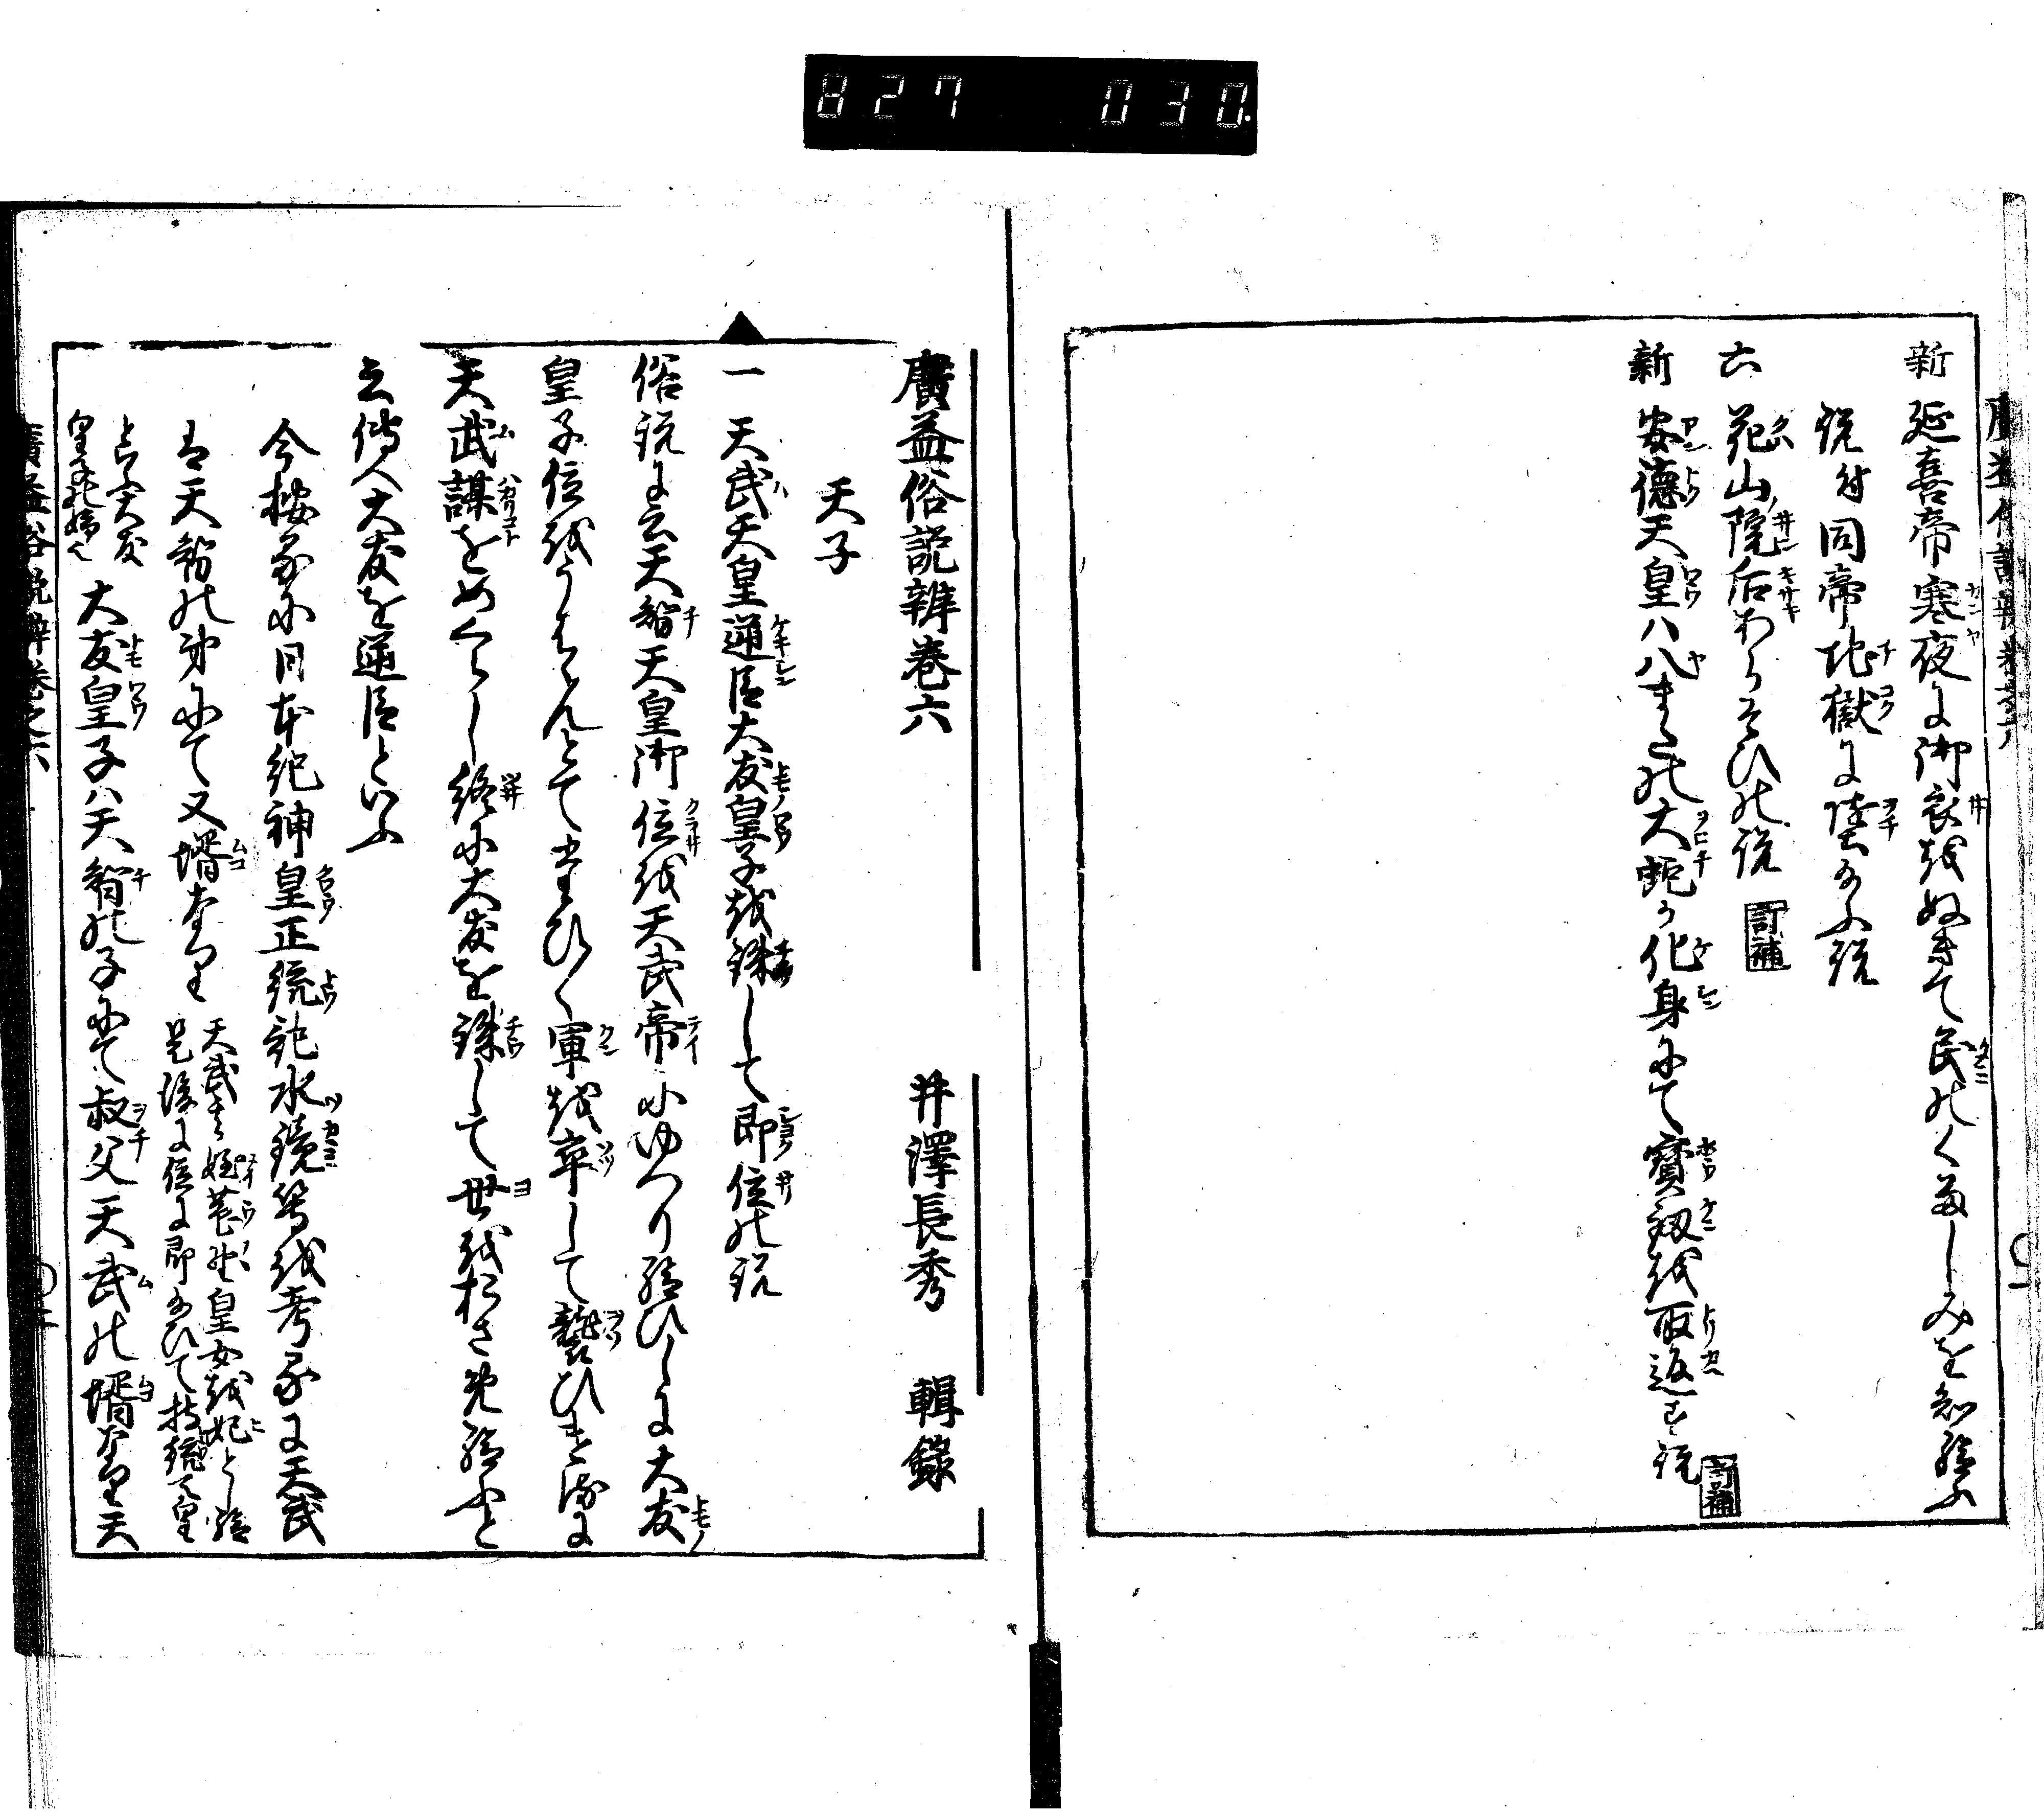 827 030
新 延喜帝寒夜に御衣をぬきて民のくるしみを知給ふ
説付同帝地獄に墮給ふ説
六 花山院后あらそひの説 訂補
新 安徳天皇ハ八またの大蛇か化身にて寶劔を取返す説 訂補
廣益俗説辨卷六 井澤長秀 輯錄
天子
一 天武天皇逆臣大友皇子を誅して即位の説
俗説に云天智天皇御位を天武帝にゆつり給ひしに大友
皇子位をうははんとて
軍を卒して襲ひける に
天武謀をめくらし終に大友を誅して世をおさめ給ふと
云傳へ大友を逆臣といふ
今按るに日本紀神皇正統記水鏡等を考るに天武
は天智の弟にて又壻なり
天武は姪菟野皇女を妃とし給
是後に位に即給ひて持統天皇
と云大友
皇子の姉也
大友皇子ハ天智の子にて叔父天武の壻なり天
廣益俗説辨卷之六